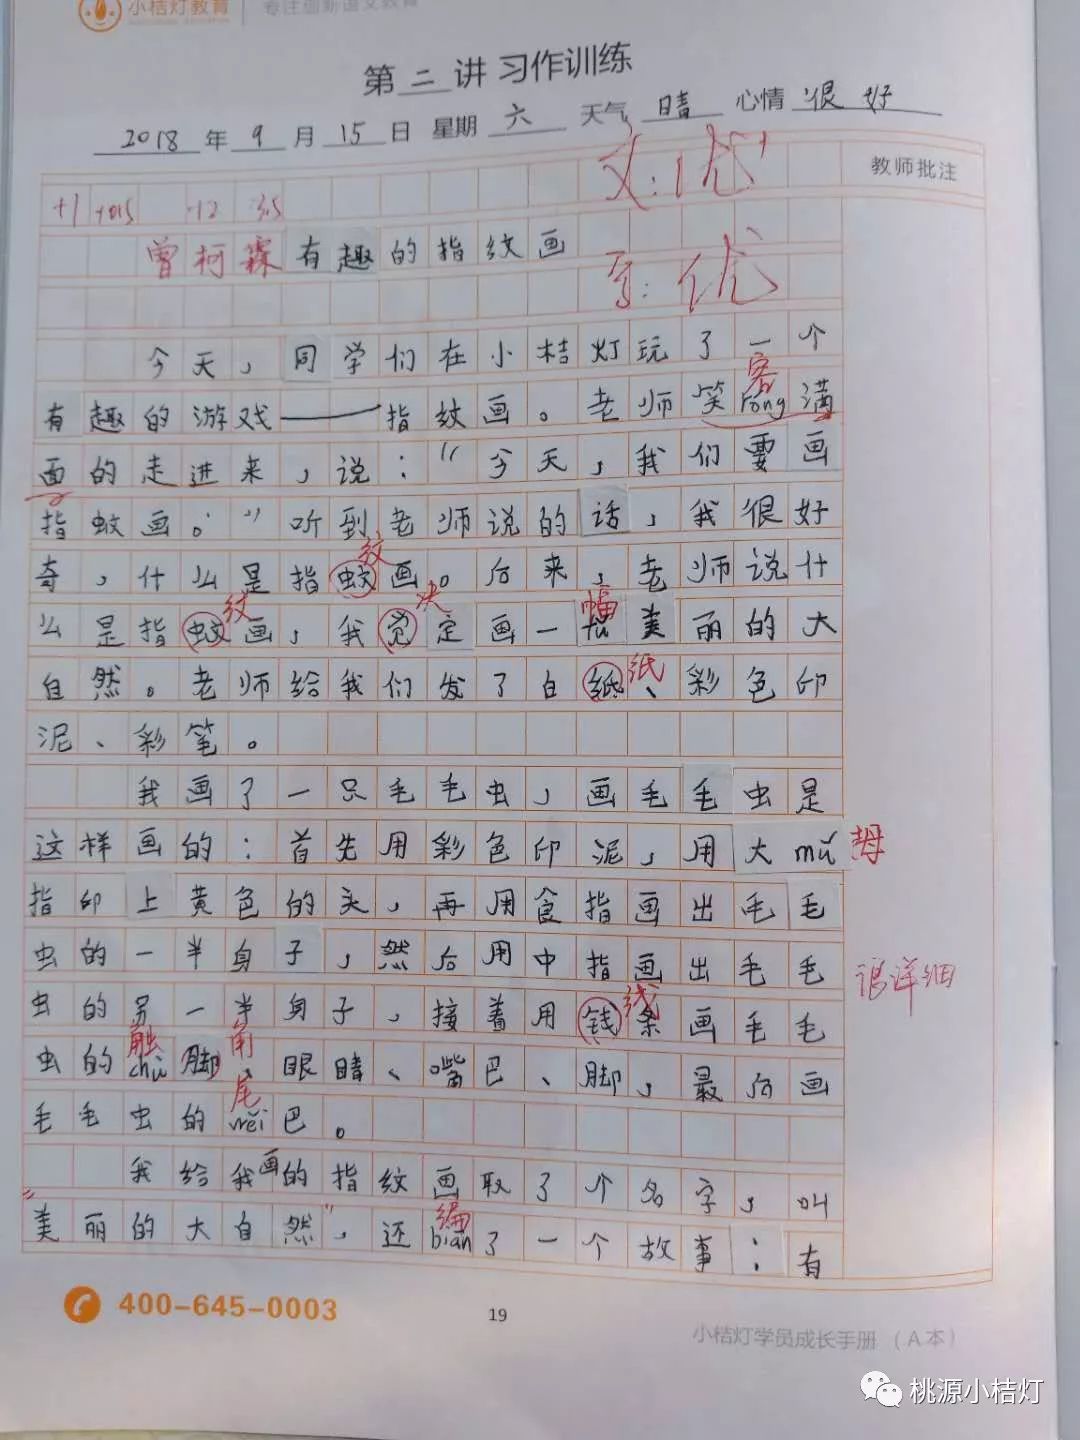 小桔灯教育 专注创新语文教育
第二讲 习作训练
2018年9月15日 星期六 天气晴 心情很好
教师批注
文:优+
+1 +0.5 +2 3.5
曾柯霖有趣的指纹画
写:优
今天，同学们在小桔灯玩了一个
容
有趣的游戏——指纹画。老师笑rong满
面的走进来，说：“今天，我们要画
指蚊画。”听到老师说的话，我很好
纹
奇，什么是指蚊画。后来，老师说什
纹 决 幅
么是指蚊画，我觉定画一fu美丽的大
纸
自然。老师给我们发了白纸、彩色印
泥、彩笔。
我画了一只毛毛虫，画毛毛虫是
这样画的：首先用彩色印泥，用大mǔ 拇
指印上黄色的头，再用食指画出毛毛
虫的一半身子，然后用中指画出毛毛
很详细
线
虫的另一半身子，接着用钱条画毛毛
触 角
虫的chù脚、眼睛、嘴巴、脚，最后画
尾
毛毛虫的wěi巴。
我给我画的指纹画取了个名字，叫
编
“美丽的大自然”，还bian了一个故事：有
400-645-0003
19
小桔灯学员成长手册（A本）
桃源小桔灯